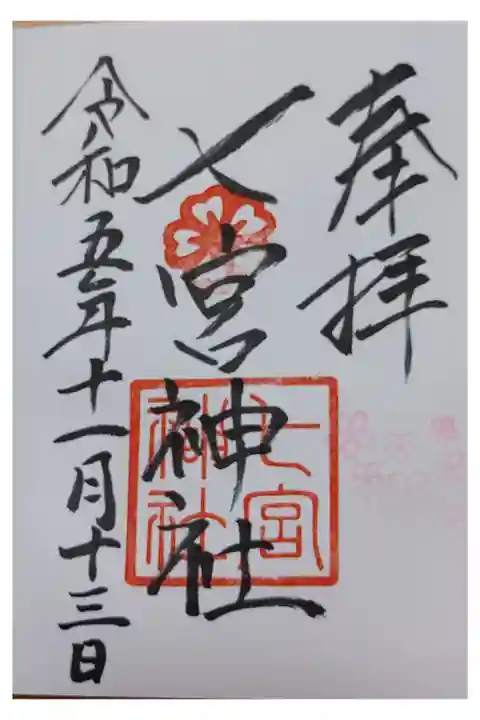 奉拝
七宮神社
七宮
神社
令和五年十一月十三日